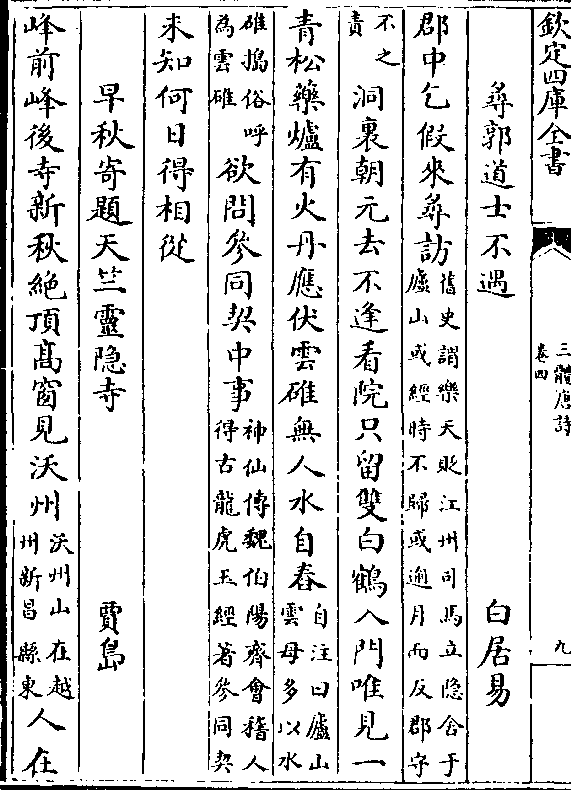 欽定四庫全書
三體唐詩
卷四
九
尋郭道士不遇 白居易
郡中乞假來尋訪舊史謂樂天貶江州司馬立隐舍于
廬山或經時不歸或逾月而反郡守
不之
責
洞裏朝元去不逢看院只留雙白鶴入門唯見一
青松藥爐有火丹應伏雲碓無人水自舂自注曰廬山
雲母多以水
碓搗俗呼
為雲碓
欲問參同契中事神仙傳魏伯陽齊會稽人
得古龍虎玉經著參同契
未知何日得相從
早秋寄題天竺靈隐寺 賈島
峰前峰後寺新秋絶頂髙窗見沃州沃州山在越
州新昌縣東
人在